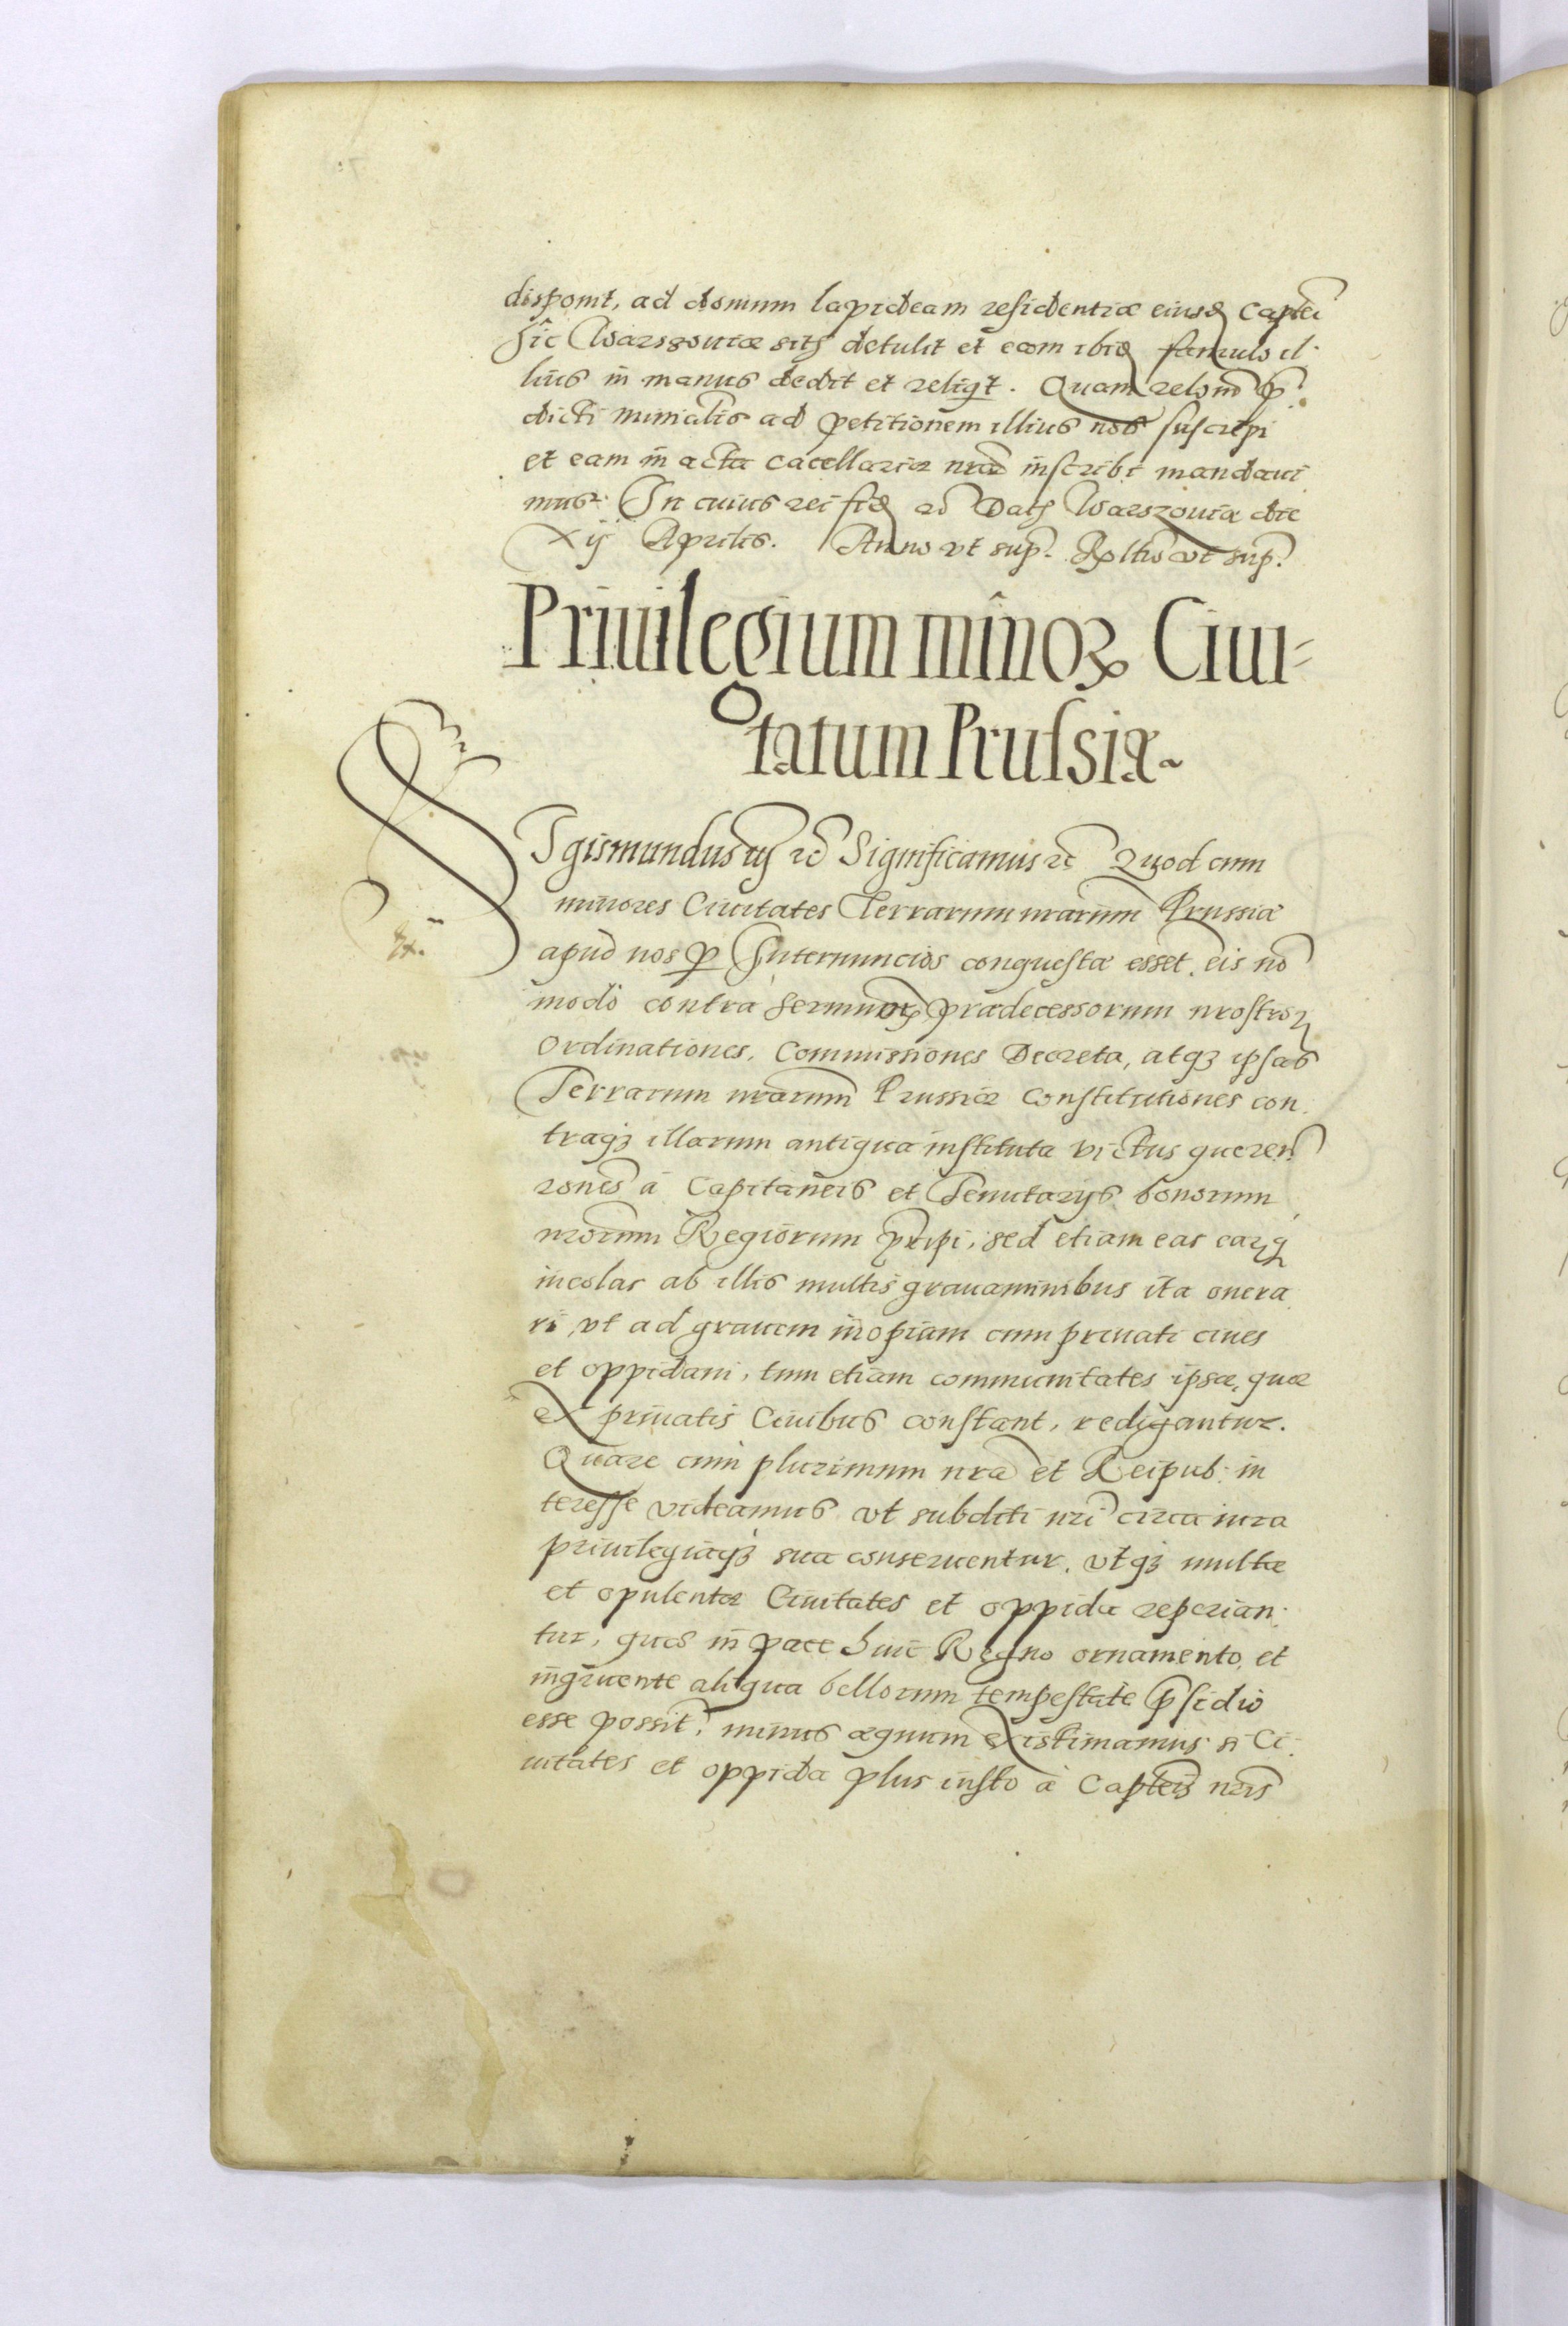 disponit, ad domum lapideam residentiæ eiusd Captei
hîc Warszouiæ sitã detulit et eam ibid famulo il-
lius in manus dedit et reliqt. Quam relõnẽ p̃
dicti ministlis ad petitionem illius nob suscepi
et eam in acta cãcellariæ nrãe inscribi mandaui
mus. In cuius rei fid etc̃ Dat Warszouiæ die
Xij Aprilis. Anno vt sup̃. Rltio vt sup̃.
Priuilegium minoꝝ Ciui=
tatum Prussiæ~
SIgismundus etc̃ Significamus etc̃ Quod cum
minores Ciuitates Terrarum nrarum Prussiæ
apud nos ꝑ Internuncios conquestæ essẽt, eis nõ
modò contra Sermorꝝ prædecessorum nrostroꝝ
Ordinationes, Commissiones Decreta, atqꝫ ipsas
Terrarum nrarum Prussiæ Constitutiones con
traqꝫ illarum antiqua instituta victus querend
rones à Capitaneis et Tenutarijs bonorum
nrorum Regiorum præripi, sed etiam eas earꝝqꝫ
incolas ab illis multis grauaminibus ita onera
ri, vt ad grauem inopiam cum priuati ciues
et oppidani, tum etiam communitates ipsæ, quæ
ex priuatis Ciuibus constant, redigantur.
Quare cum plurimum nrã et Reipub: in
teresse videamus vt subditi nrĩ circa iura
priuilegiaqꝫ sua conseruentur, vtqꝫ multæ
et opulentæ Ciuitates et oppida reperian
tur, quæ in pace huic Regno ornamento, et
ingruente aliqua bellorum tempestate p̃sidio
esse possit, minus æquum existimamus si Ci
uitates et oppida plus iusto à Capteis nris